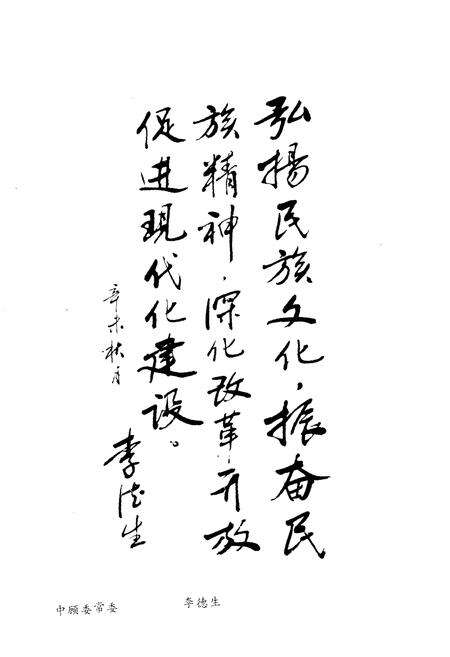 弘揚民族文化，振奋民
族精神，深化改革开放
促进現代化建设。
辛未秋月
李德生
中顾委常委 李德生